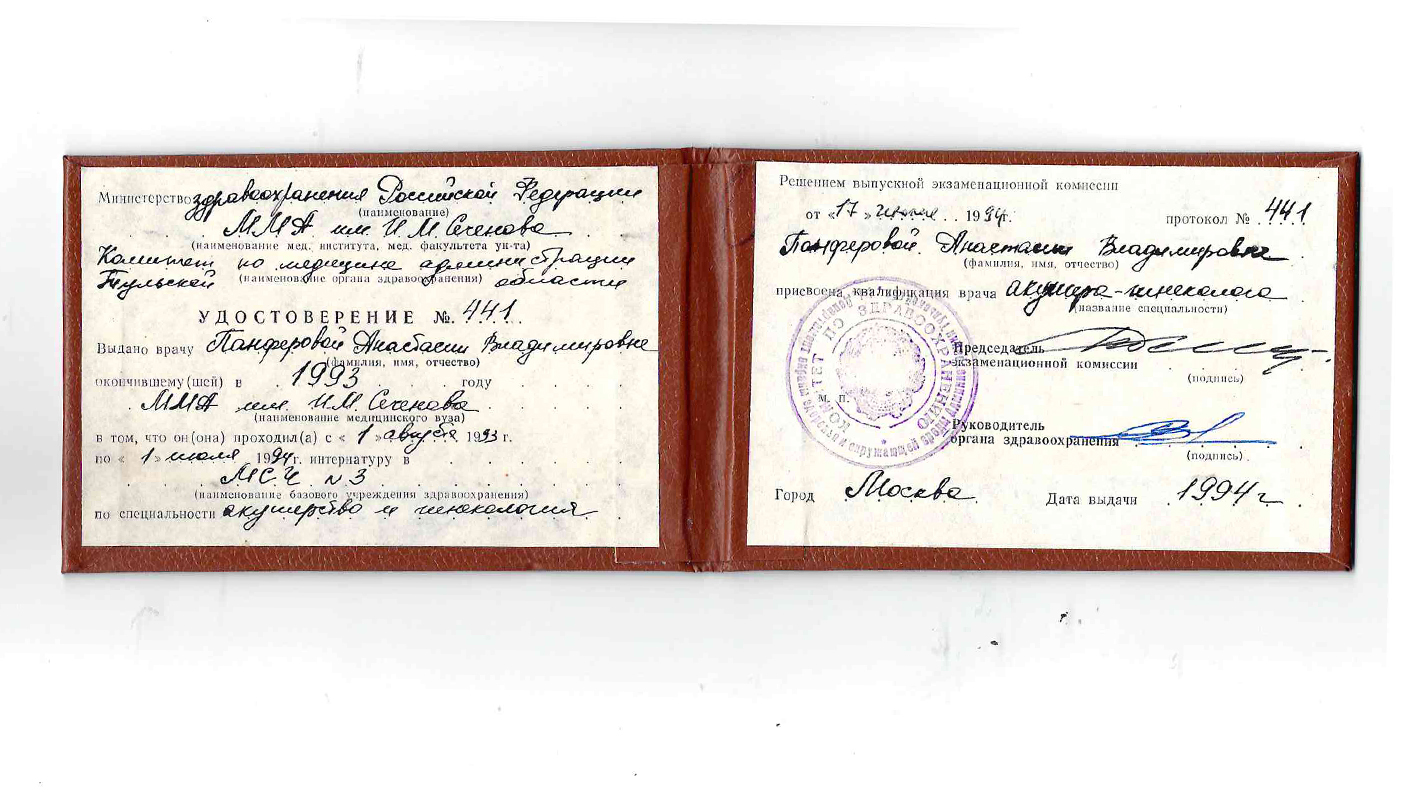 Министерство здравоохранения Российской Федерации
(наименование)
ММА им. И.М. Сеченова
(наименование мед. института, мед. факультета ун-та)
Комитет по медицине администрации
Тульской области
(наименование органа здравоохранения)
УДОСТОВЕРЕНИЕ № 441
Выдано врачу Панферовой Анастасии Владимировне
(фамилия, имя, отчество)
окончившему(шей) в 1993 году
ММА им. И.М. Сеченова
(наименование медицинского вуза)
в том, что он(она) проходил(а) с «1» августа 1993 г.
по «1» июля 1994 г. интернатуру в
МСЧ N3
(наименование базового учреждения здравоохранения)
по специальности акушерство и гинекология
Решением выпускной экзаменационной комиссии
от «17» 1994 г. протокол № 441
Панферовой Анастасии Владимировне
(фамилия, имя, отчество)
присвоена квалификация врача акушера-гинеколога
(название специальности)
Председатель
экзаменационной комиссии
(подпись)
М. П.
Руководитель
органа здравоохранения
(подпись)
Город Москва Дата выдачи 1994 г
КОМИТЕТ ПО ЗДРАВООХРАНЕНИЮ